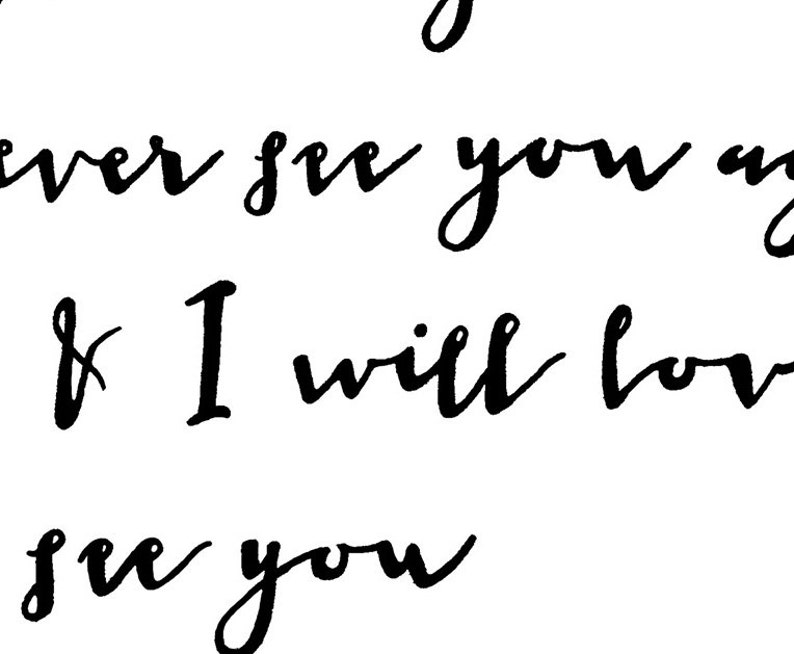 ever see you ag
& I will lov
see you